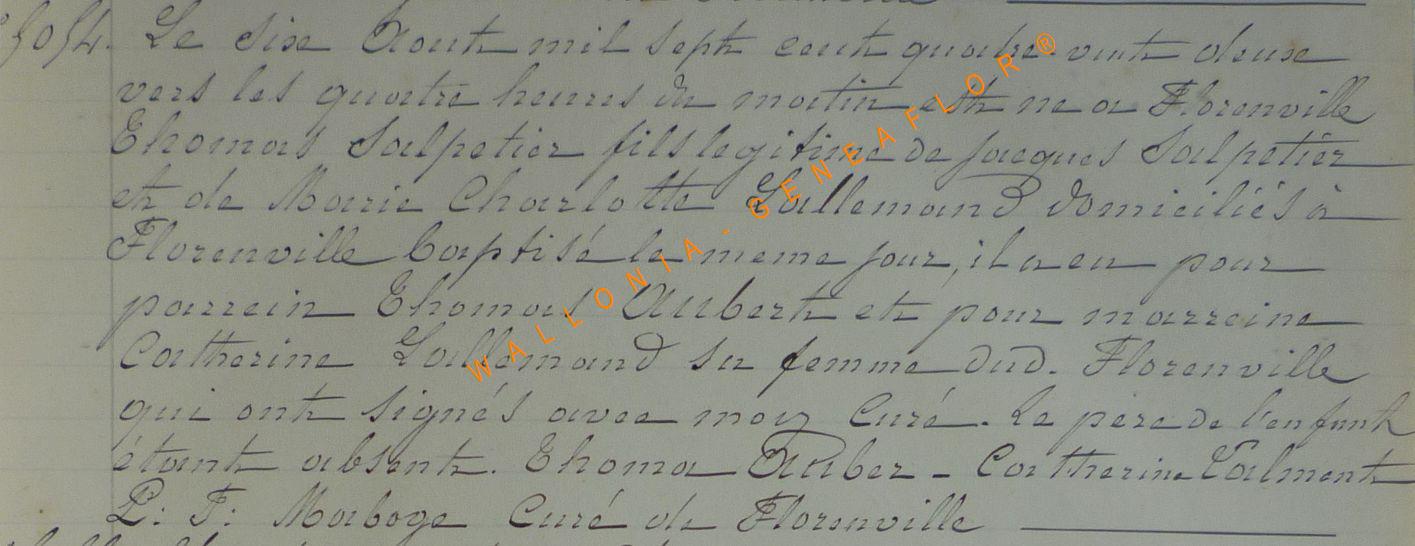 5054. Le six Aout mil sept cent quatre-vint deux
vers les quatre heures du matin est ne a Florenville
Thomas Salpetier fils legitime de Jacques Salpetier
et de Marie Charlotte Lallemand domiciliés à
Florenville baptisé le meme jour, il a eu pour
parrein Thomas Aubert et pour marreine
Catherine Lallemand sa femme dud. Florenville
qui ont signés avec moy Curé. Le pere de l'enfant
étant absent. Thoma Auber - Catherine Lalment
P: F: Maboge Curé de Florenville
WALLONIA - GENEAFLOR ®